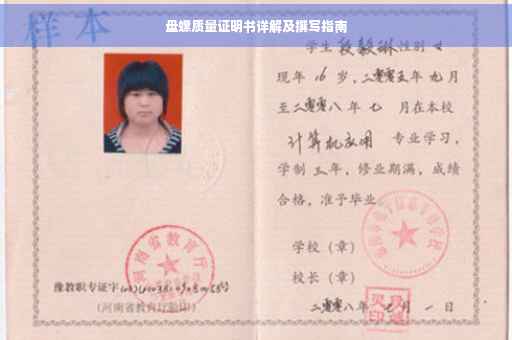 盘螺质量证明书详解及撰写指南
样本
学生 段毅琳 性别 女
现年 16 岁，二零零五年 九 月
至二零零八年 七 月在本校
计算机应用 专业学习，
学制 三 年，修业期满，成绩
合格，准予毕业。
学校（章）
校长（章）
二零零八年 七 月 一 日
河南省教育厅
豫教职专证字
（河南省教育厅验印）